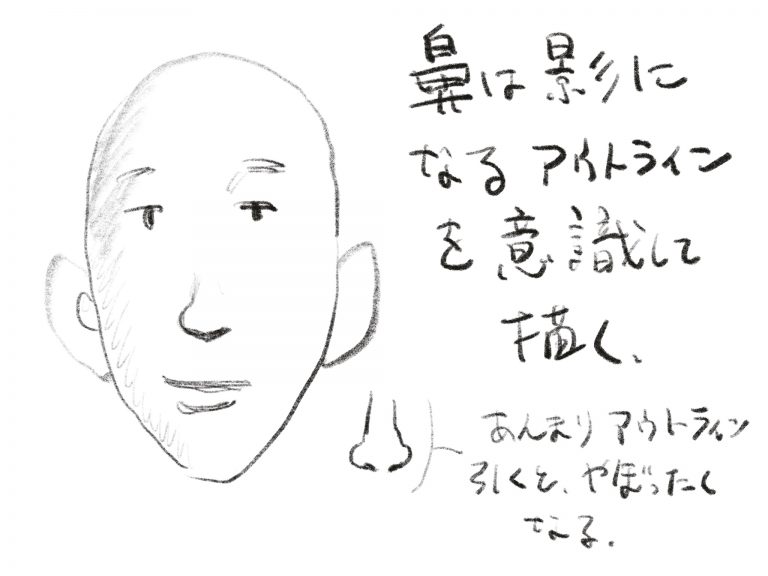 鼻は影に
なるアウトライン
を意識して
描く、
あんまりアウトライン
引くと、やぼったく
なる.